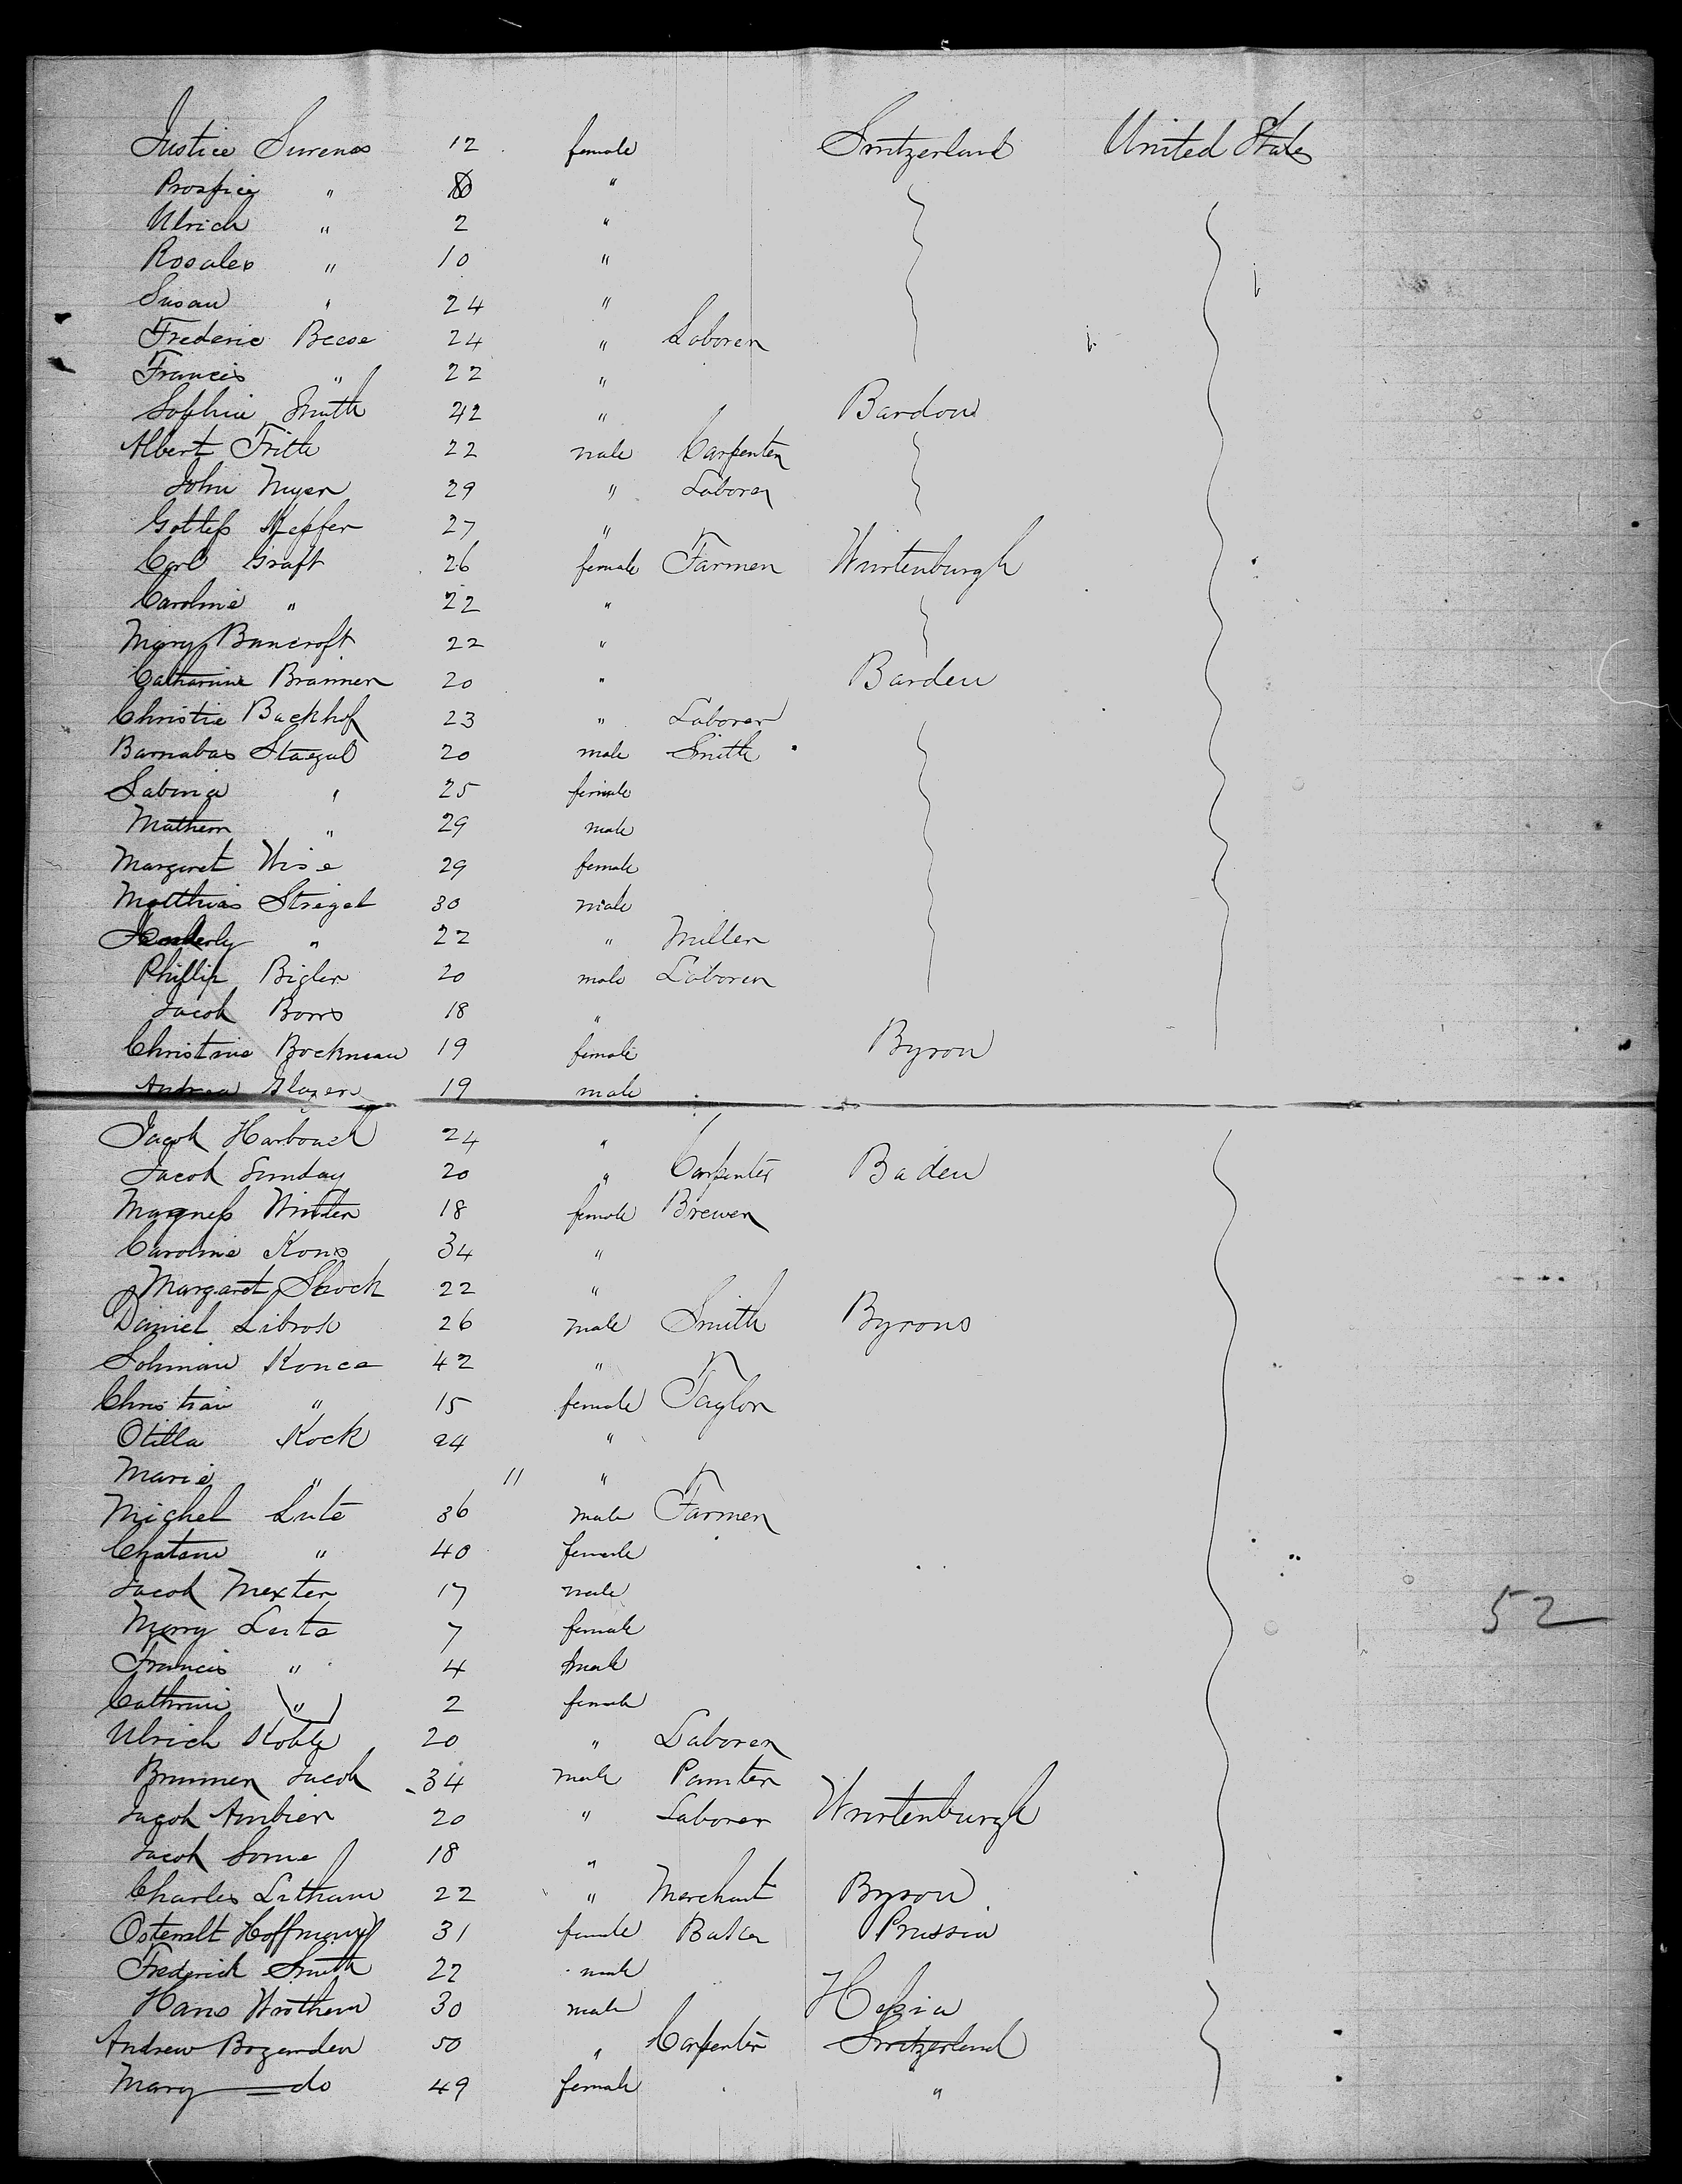 Justice Surenas 12 female Switzerland United States
" "
Ulrich " 2 "
Rosales " 10 "
Susan " 24 "
Frederic Beese 24 " Laborer
Francis " 22 "
Sophia Smith 42 " Bardon
Albert Frith 22 male Carpenter
John Myer 29 " Laborer
27 "
Carl Graft 26 female Farmer Wurtenburgh
Caroline " 22 "
Mary Bancroft 22 "
Catharine Branner 20 " Barden
Christie Backhof 23 " Laborer
Barnabas Stazal 20 male Smith
Sabina " 25 female
Mathern " 29 male
Margaret Wise 29 female
Matthias Streigel 30 male
" 22 " Miller
Phillip Bigler 20 male Laborer
Jacob Borns 18 "
Christine Bockman 19 female Byron
Andrea Glazer 19 male
Jacob Harbouch 24 "
Jacob Sunday 20 " Carpenter Baden
Magness Winter 18 female Brewer
Caroline Kons 34 "
Margaret Shock 22 "
Daniel Librok 26 male Smith Byrons
Sohman Konce 42 "
Christian " 15 female Taylor
Otilla Kock 24 "
Marie " 11 "
Michel Lute 36 male Farmer
Chatam " 40 female
Jacob Mexter 17 male
Mary Lute 7 female
Francis " 4 male
Cathrini " 2 female
Ulrich Kohly 20 " Laborer
Brunner Jacob 34 male Painter
Jacob Ambier 20 " Laborer Wurtenburgh
Jacob Some 18 "
Charles Latham 22 " Merchant Byron
Osterralt Hoffman 31 female Baker Prussia
Frederick Smith 22 male
Hans Wrothern 30 male Hessia
Andrew Bozarden 50 " Carpenter Switzerland
Mary do 49 female "
52